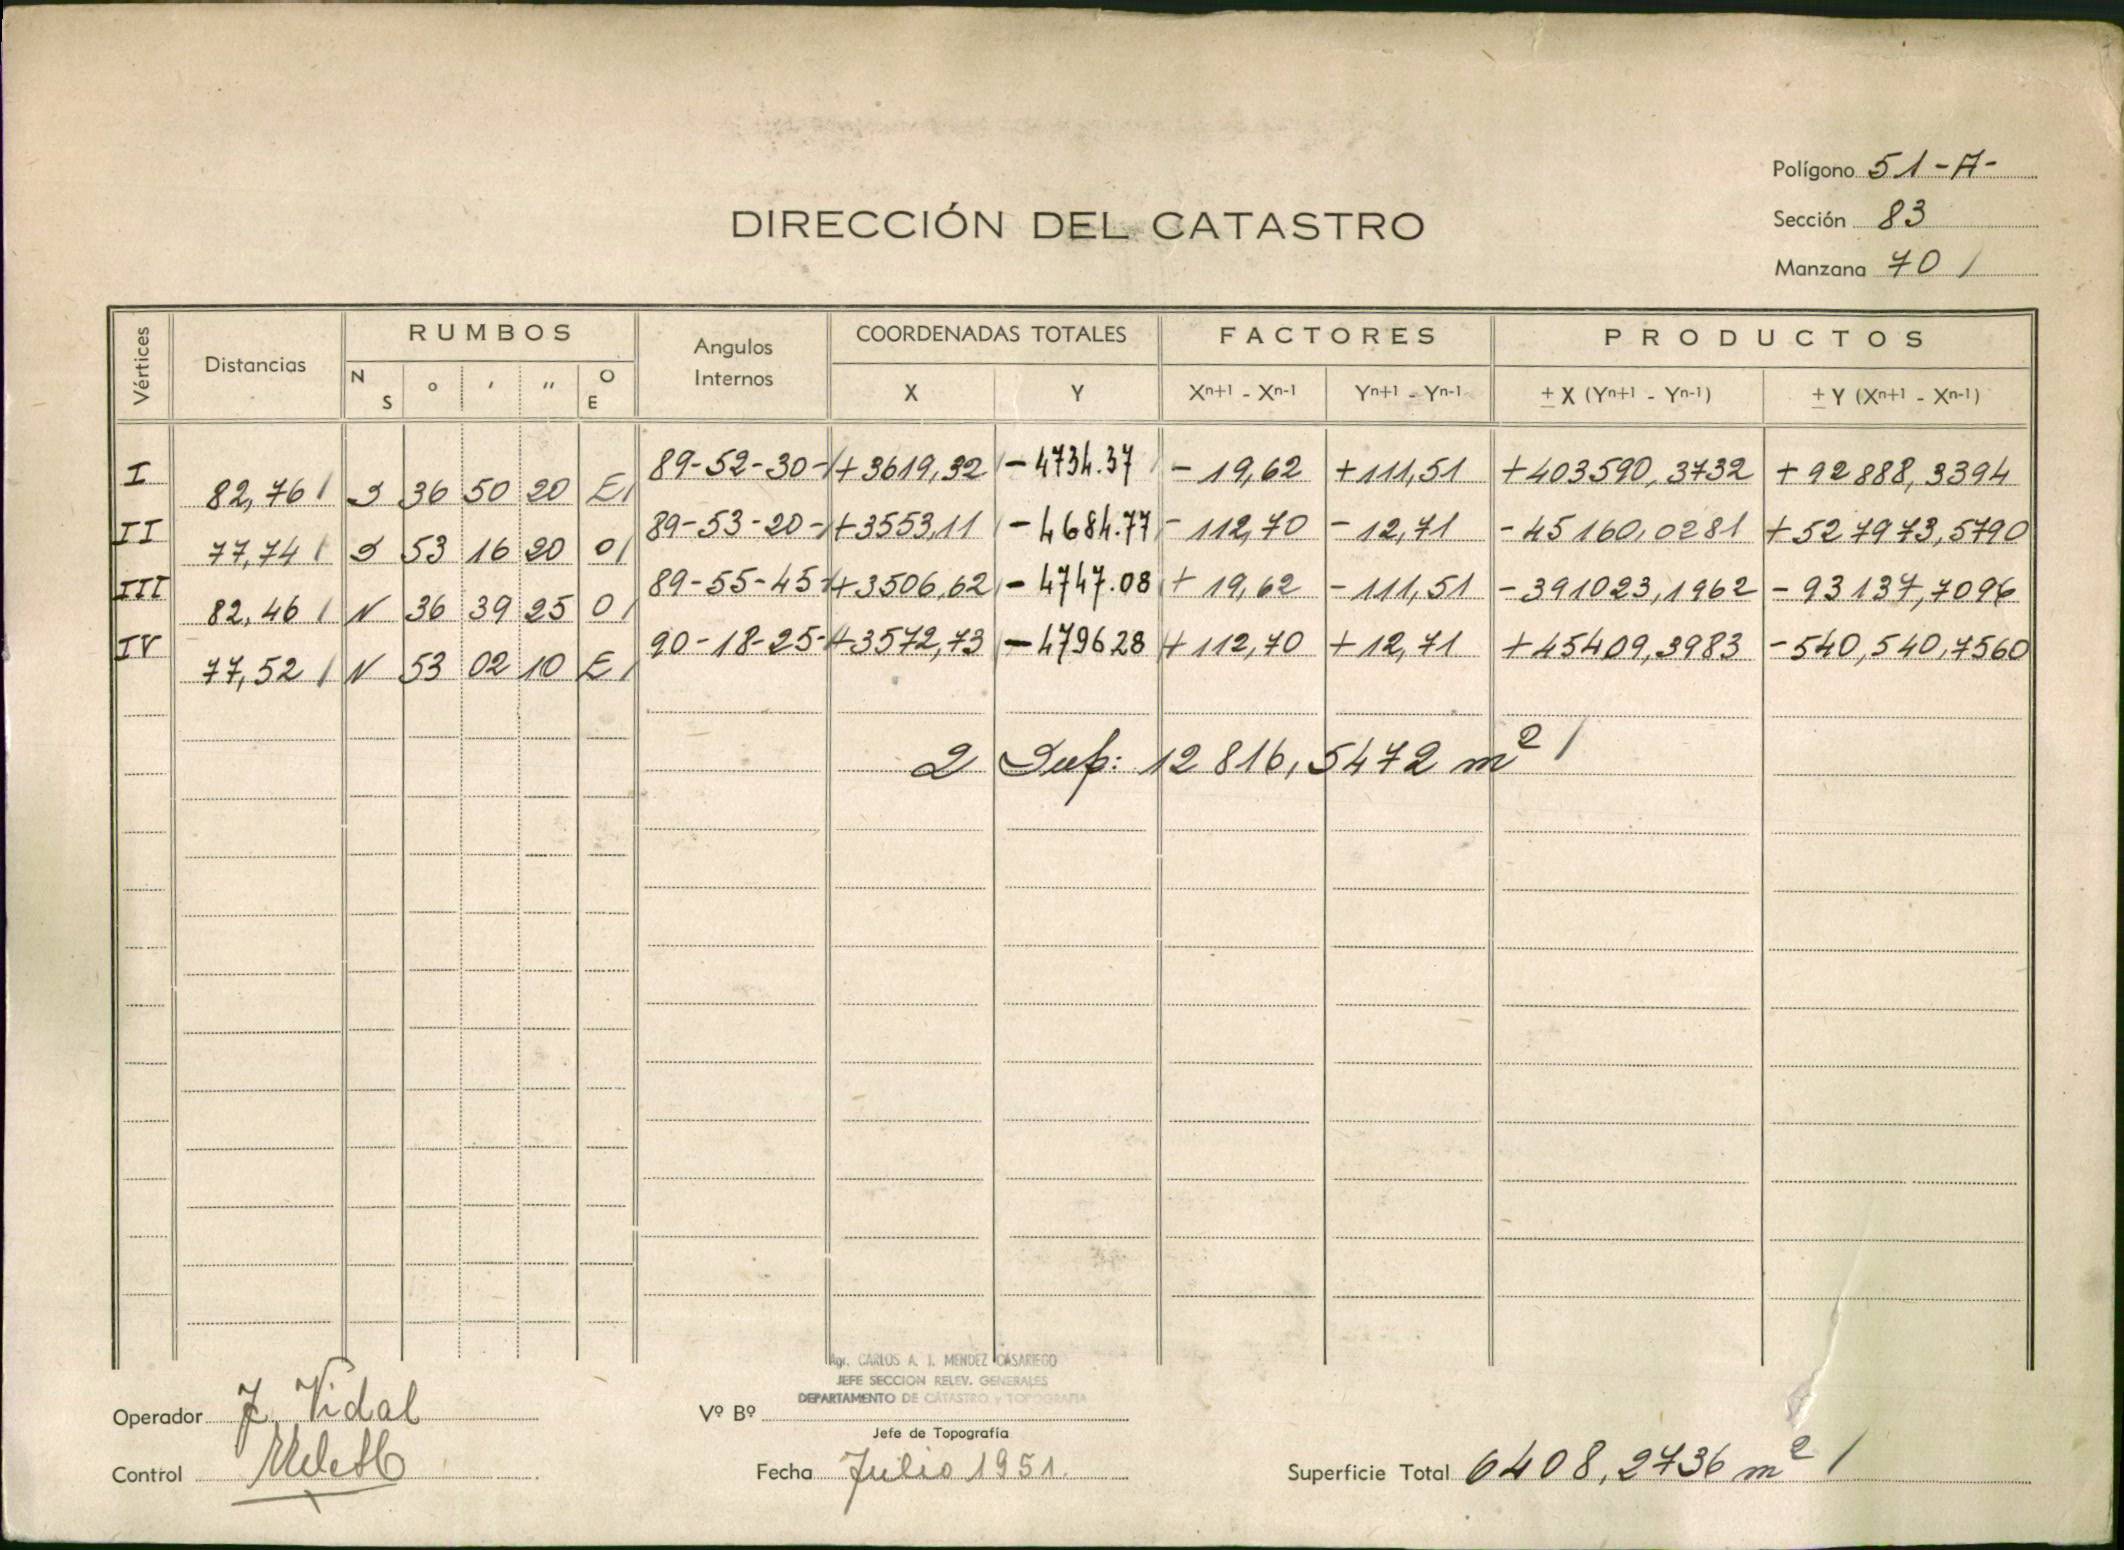 Polígono 51-A-
Sección 83
Manzana 70 /
DIRECCIÓN DEL CATASTRO
Vértices Distancias RUMBOS Angulos Internos COORDENADAS TOTALES FACTORES PRODUCTOS
N S ° ' " O E X Y Xn+1 - Xn-1 Yn+1 - Yn-1 ± X (Yn+1 - Yn-1) ± Y (Xn+1 - Xn-1)
I 89-52-30- +3619,32 -4734.37 -19,62 +111,51 +403590,3732 +92888,3394
82,76 / S 36 50 20 E /
II 89-53-20- +3553,11 -4684.77 -112,70 -12,71 -45160,0281 +527973,5790
77,74 / S 53 16 20 O /
III 89-55-45- +3506,62 -4747.08 +19,62 -111,51 -391023,1962 -93137,7096
82,46 / N 36 39 25 O /
IV 90-18-25- +3572,73 -479628 +112,70 +12,71 +45409,3983 -540,540,7560
77,52 / N 53 02 10 E /
2 Sup: 12816,5472 m² /
Agr. CARLOS A. J. MENDEZ CASARIEGO
JEFE SECCION RELEV. GENERALES
DEPARTAMENTO DE CATASTRO y TOPOGRAFIA
Operador J. Vidal
Vº Bº
Jefe de Topografía
Control
Fecha Julio 1951.
Superficie Total 6408,2736 m² /